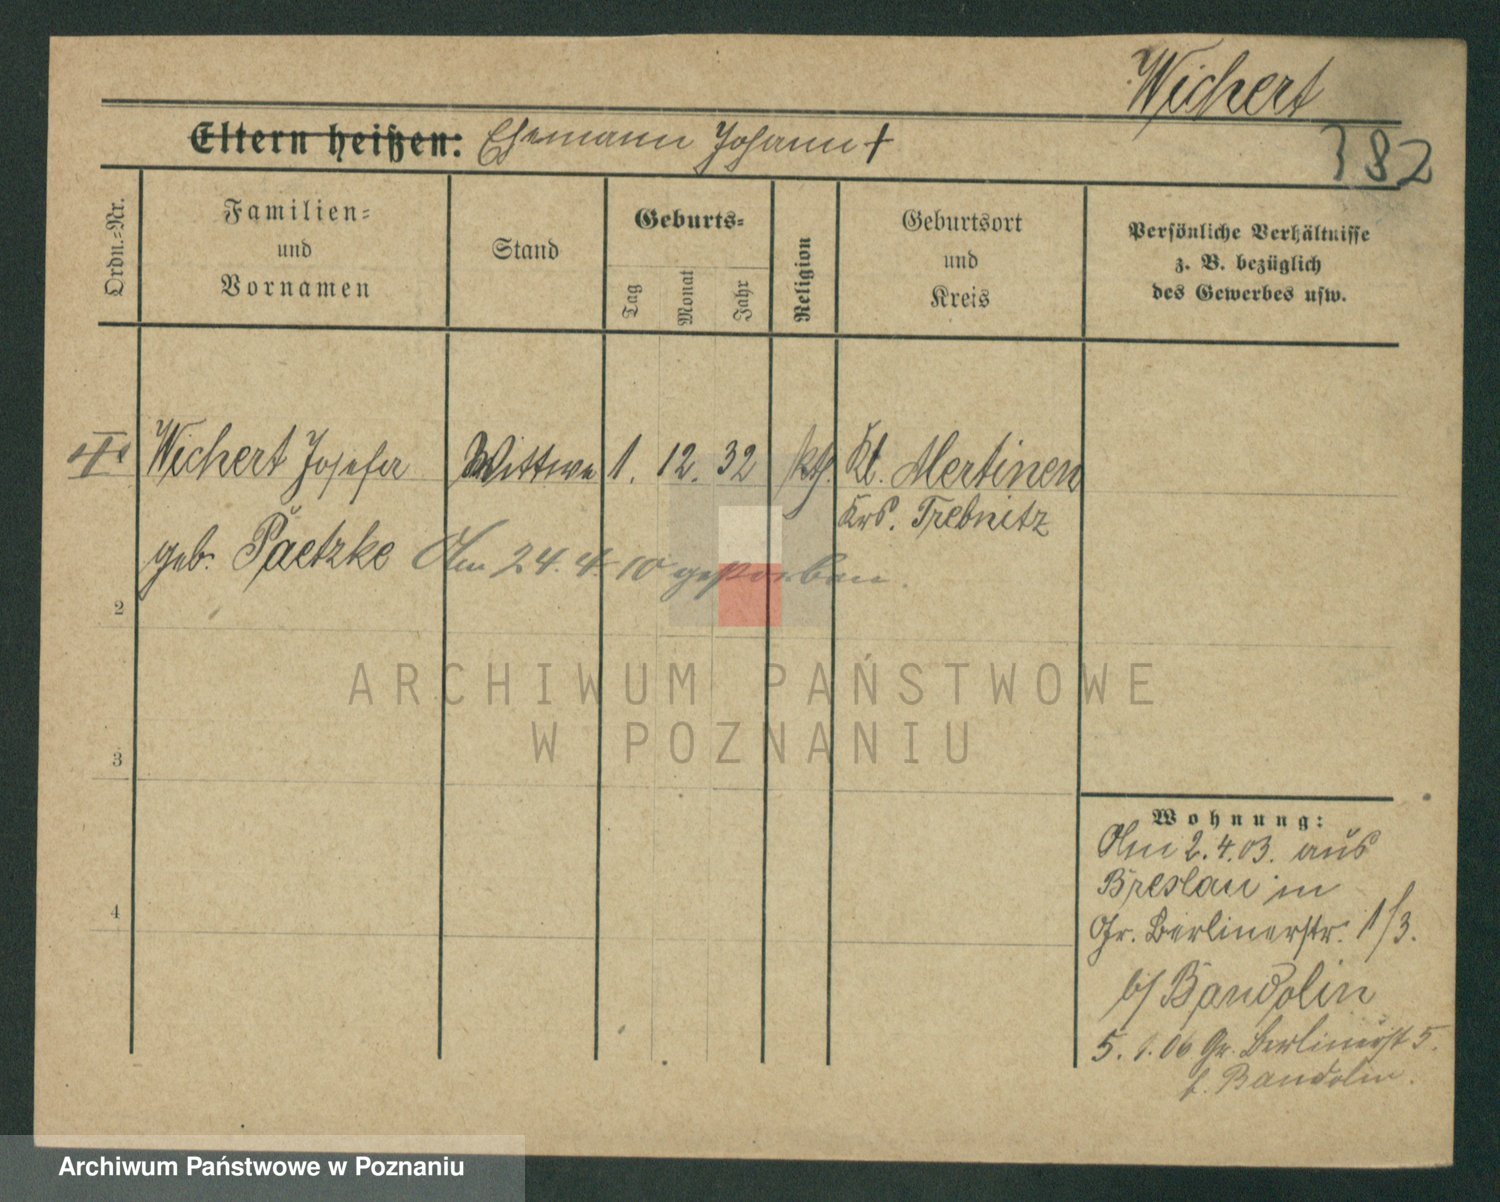 Wichert
382
Eltern heißen: Ehemann Johann †
Ordn.-Nr.
Familien-
und
Vornamen
Stand
Geburts-
Tag
Monat
Jahr
Religion
Geburtsort
und
Kreis
Persönliche Verhältnisse
z. B. bezüglich
des Gewerbes usw.
Wichert Josefa Wittwe 1. 12. 32 kth. Kl. Mertinen
Krs. Trebnitz
geb. Paetzke Am 24. 4. 10 gestorben.
2
3
4
Wohnung:
Am 2. 4. 03. aus
Breslau in
Gr. Berlinerstr. 1/3.
b/ Bandolin
5. 1. 06 Gr. Berlinerst 5.
b. Bandolin.
ARCHIWUM PAŃSTWOWE
W POZNANIU
Archiwum Państwowe w Poznaniu